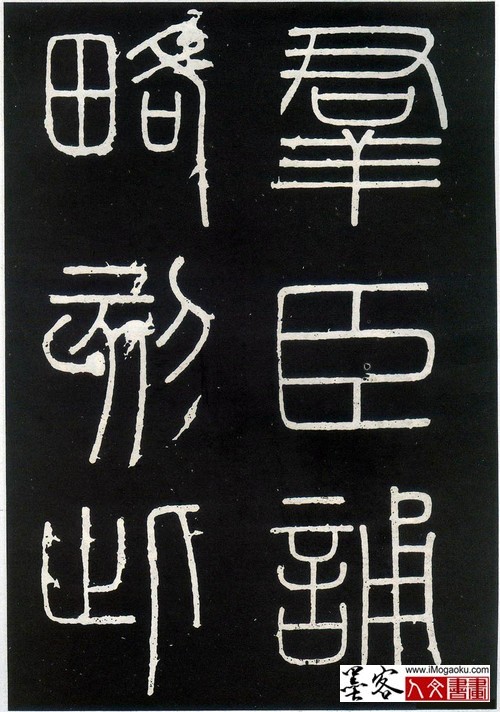 羣臣誦
略刻此
www.iMogaoku.com
墨客
人文書畫